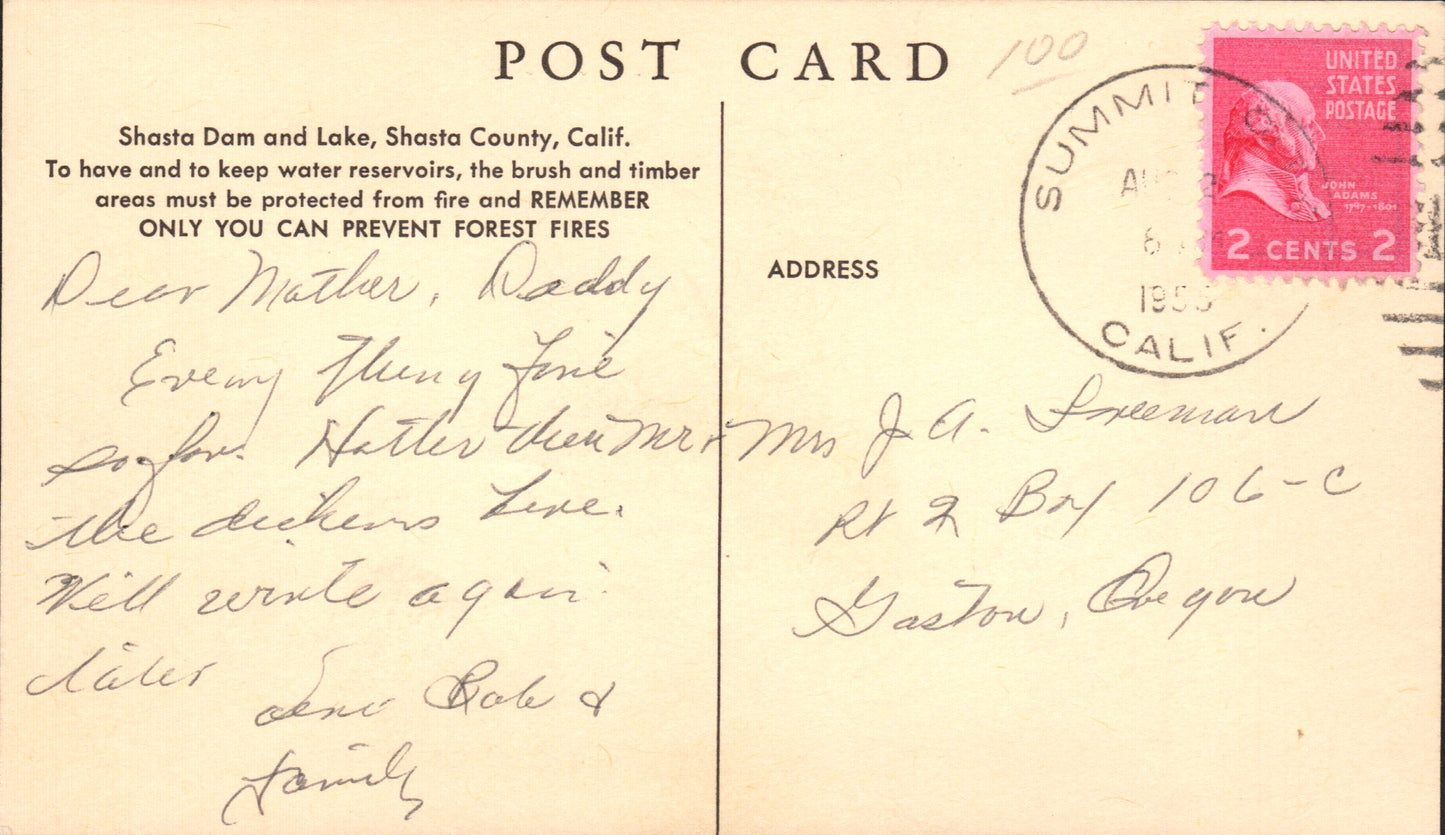 POST CARD
100
Shasta Dam and Lake, Shasta County, Calif.
To have and to keep water reservoirs, the brush and timber
areas must be protected from fire and REMEMBER
ONLY YOU CAN PREVENT FOREST FIRES
Dear Mother, Daddy
Every Thing Fine
so far. Hotter then
the dickens here.
Will write again
later
Bob &
Family
UNITED
STATES
POSTAGE
JOHN
ADAMS
1797-1801
2 CENTS 2
SUMMIT CITY
AUG 2
8
195
CALIF.
ADDRESS
Mr & Mrs J A. Freeman
Rt 2 Box 106-C
Gaston, Oregon